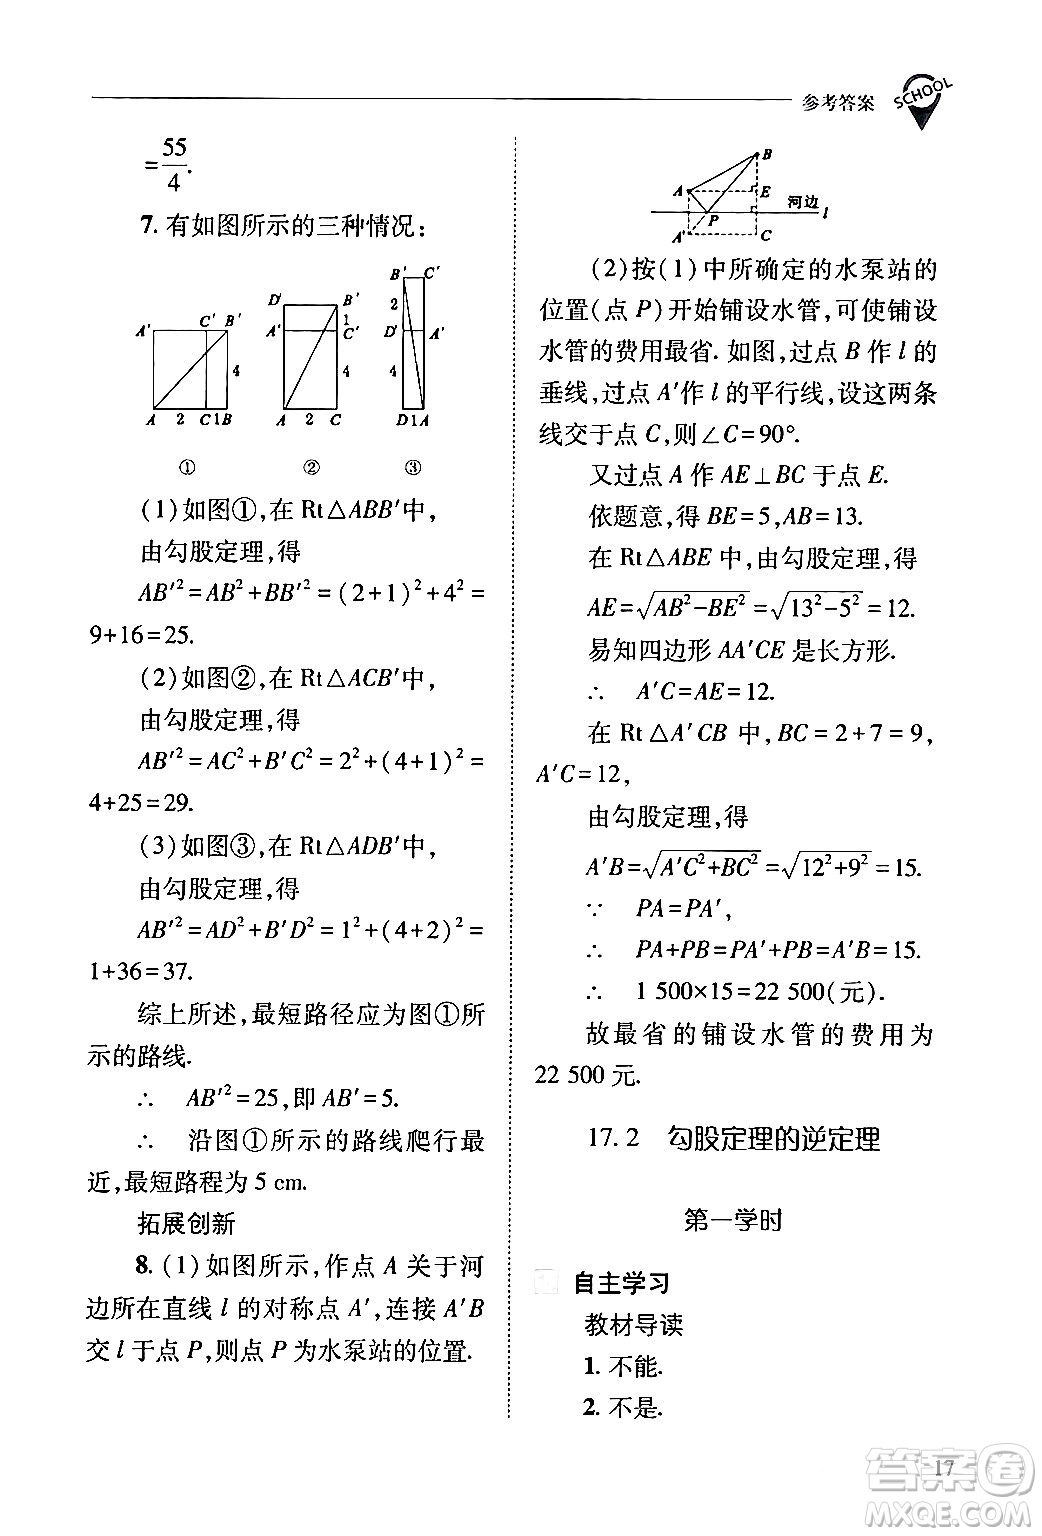 参考答案
SCHOOL
=55/4.
7. 有如图所示的三种情况：
A′ C′ B′ 4 A 2 C 1 B
D′ B′ 1 A′ C′ 4 A 2 C
B′ C′ 2 D′ A′ 4 D 1 A
① ② ③
(1)如图①,在 Rt△ABB′中,
由勾股定理,得
AB′²=AB²+BB′²=(2+1)²+4²=
9+16=25.
(2)如图②,在 Rt△ACB′中,
由勾股定理,得
AB′²=AC²+B′C²=2²+(4+1)²=
4+25=29.
(3)如图③,在 Rt△ADB′中,
由勾股定理,得
AB′²=AD²+B′D²=1²+(4+2)²=
1+36=37.
综上所述,最短路径应为图①所
示的路线.
∴ AB′²=25,即 AB′=5.
∴ 沿图①所示的路线爬行最
近,最短路程为 5 cm.
拓展创新
8. (1)如图所示,作点 A 关于河
边所在直线 l 的对称点 A′,连接 A′B
交 l 于点 P,则点 P 为水泵站的位置.
B A E 河边 l P A′ C
(2)按(1)中所确定的水泵站的
位置(点 P)开始铺设水管,可使铺设
水管的费用最省. 如图,过点 B 作 l 的
垂线,过点 A′作 l 的平行线,设这两条
线交于点 C,则∠C=90°.
又过点 A 作 AE⊥BC 于点 E.
依题意,得 BE=5,AB=13.
在 Rt△ABE 中,由勾股定理,得
AE=√(AB²−BE²)=√(13²−5²)=12.
易知四边形 AA′CE 是长方形.
∴ A′C=AE=12.
在 Rt△A′CB 中,BC=2+7=9,
A′C=12,
由勾股定理,得
A′B=√(A′C²+BC²)=√(12²+9²)=15.
∵ PA=PA′,
∴ PA+PB=PA′+PB=A′B=15.
∴ 1 500×15=22 500(元).
故最省的铺设水管的费用为
22 500 元.
17.2 勾股定理的逆定理
第一学时
自主学习
教材导读
1. 不能.
2. 不是.
17
答案圈
MXQE.COM